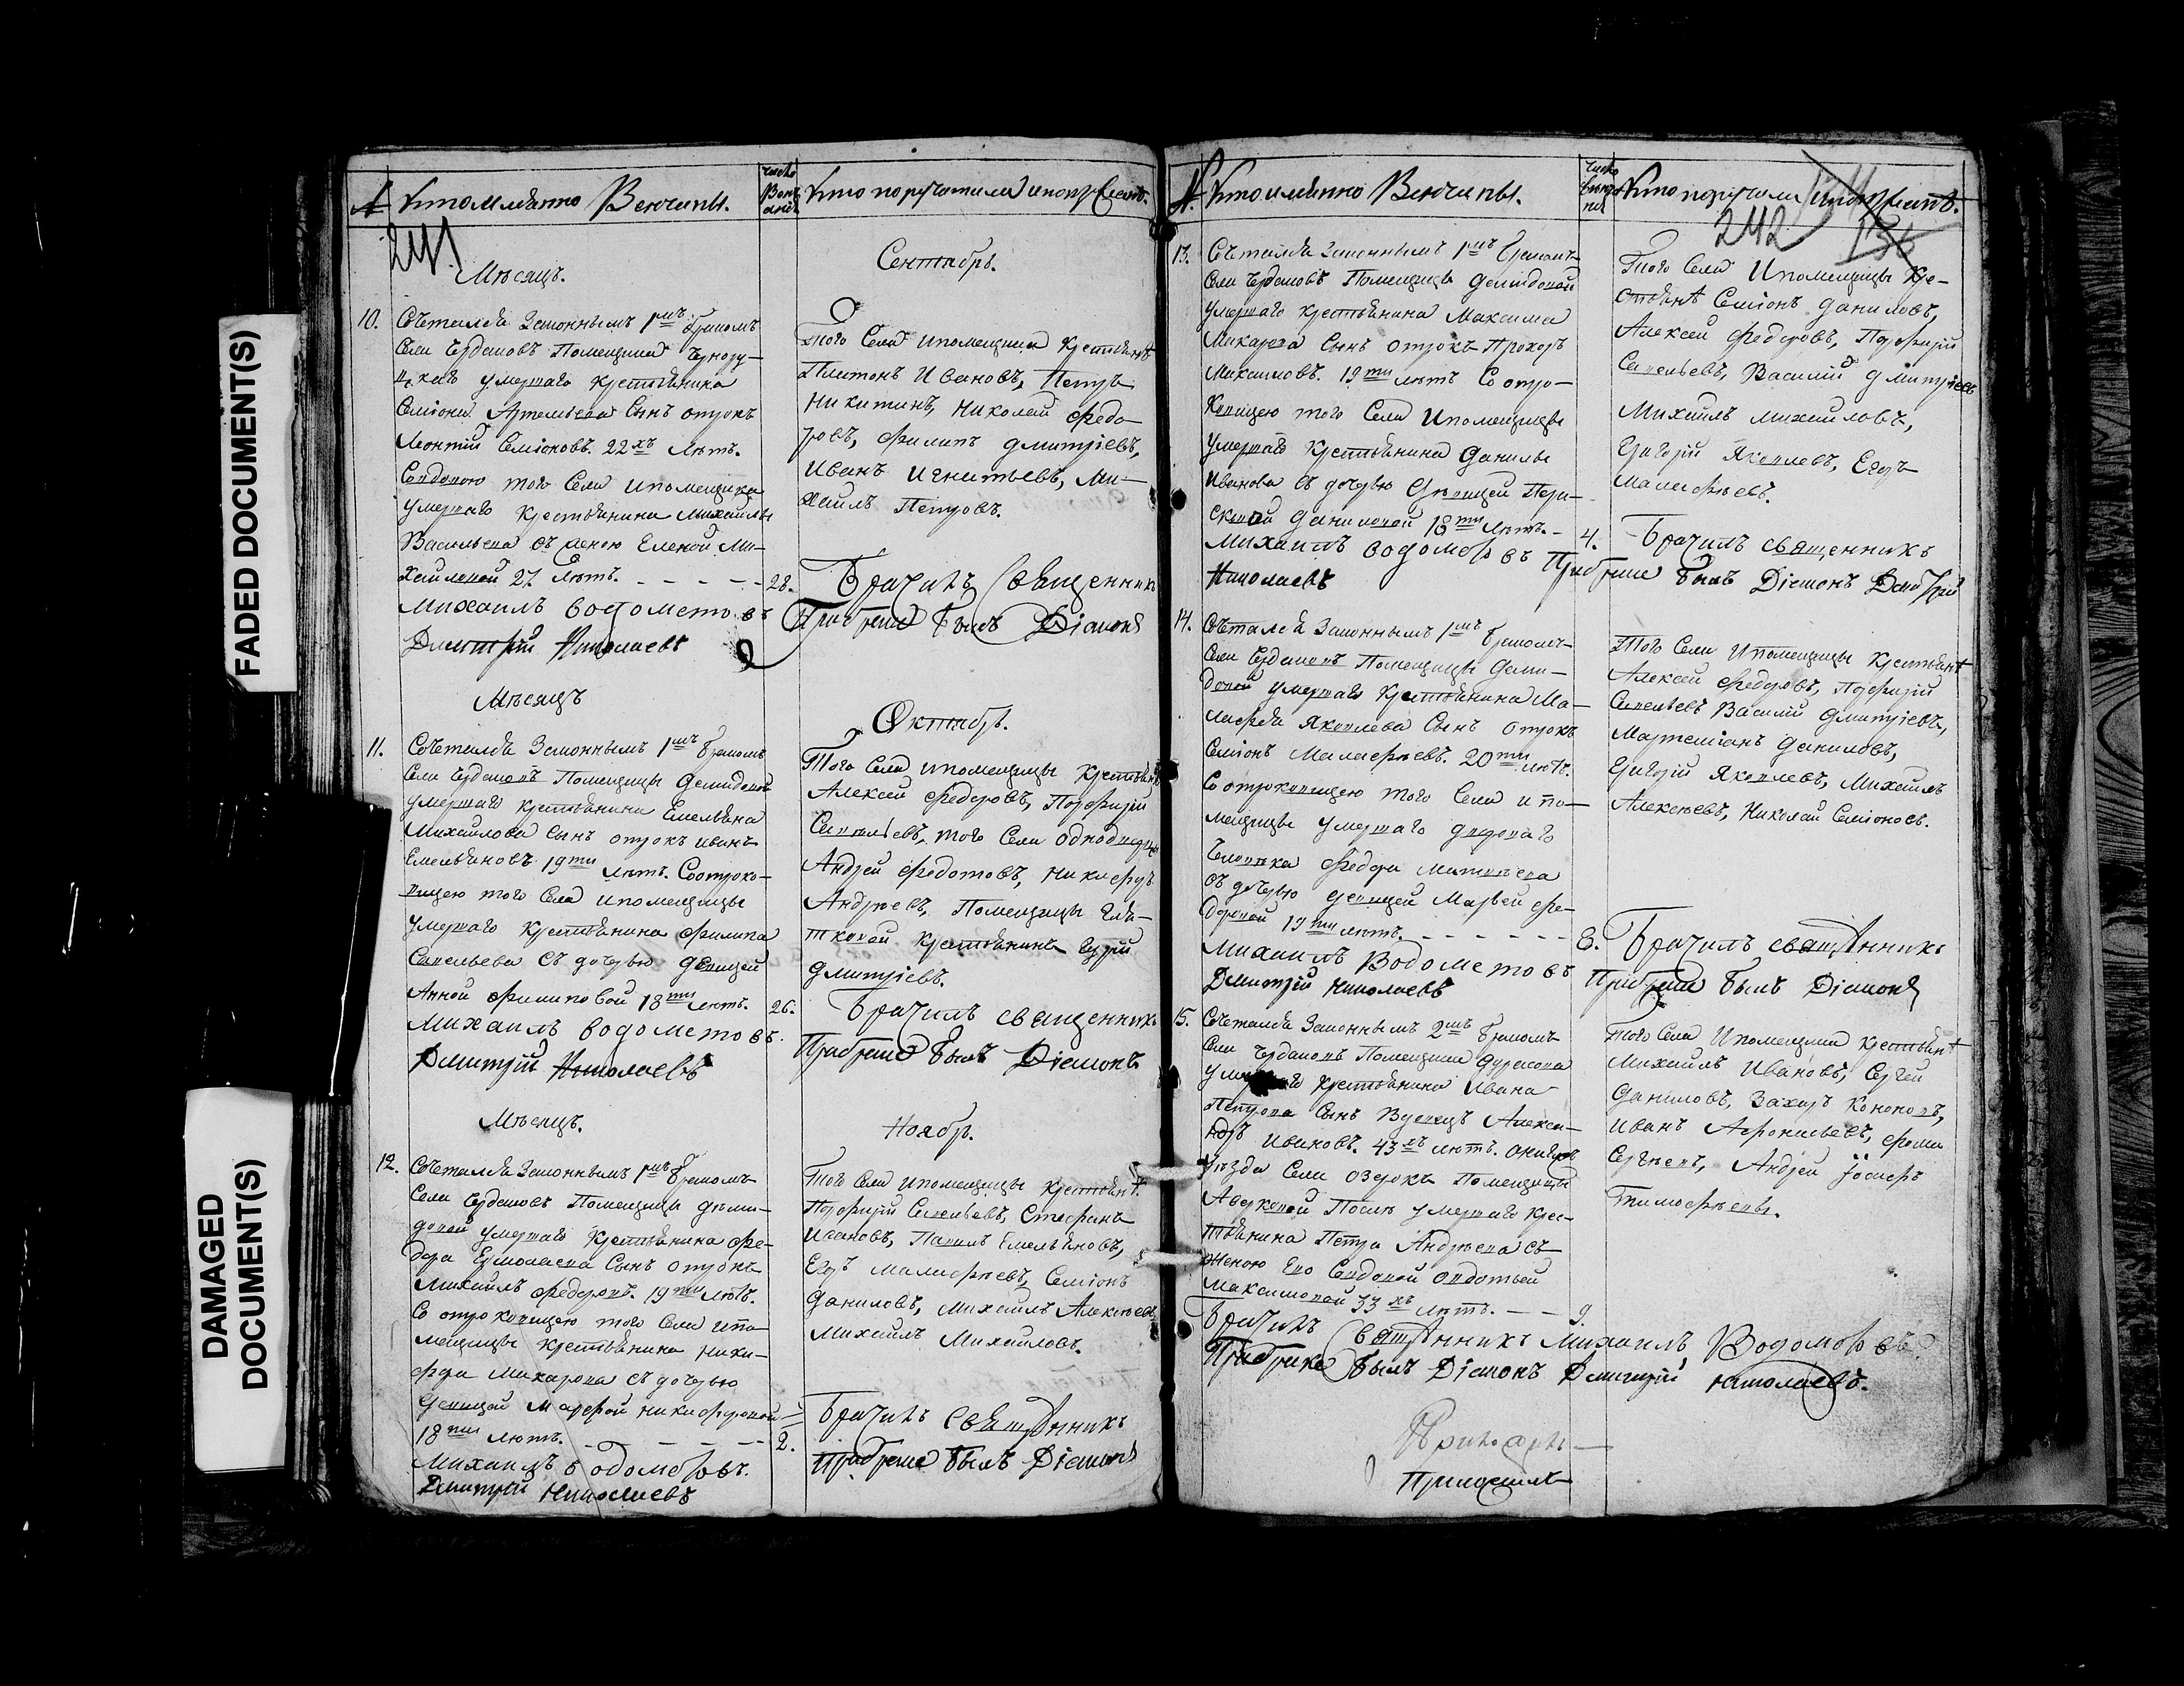 FADED DOCUMENT(S)
DAMAGED
DOCUMENT(S)
№ Кто имянно Венчаны.
число
Венч
ания
Кто поручатели и по
241
Мѣсяцъ.
Сентябрь.
10. Съчетался Законнымъ 1мъ бракомъ
Села Помещика
умершаго крестьянина
Семіона Артемьева Сынъ отрокъ
Леонтій Семіоновъ. 22хъ лѣтъ.
Совдовою того Села ипомещика
умершаго крестьянина Михайлы
Васильева съ женою Еленой Ми-
хайловой 27. лѣтъ. - - - - - 28.
Михаилъ Водометовъ
Дмитрій Николаевъ
того Села ипомещика крестьянѣ
Платонъ Ивановъ, Петръ
Никитинъ, Николай Федо-
ровъ, Филипъ Дмитріевъ,
Иванъ Игнатьевъ, Ми-
хаилъ Петровъ.
Брачилъ Священникъ
Приbраке былъ Діаконъ
Мѣсяцъ
Октябрь.
11. Съчетался Законнымъ 1мъ бракомъ
Села Помещицы Демидовой
умершаго крестьянина Емельяна
Михайлова сынъ отрокъ Иванъ
Емельяновъ 19ти лѣтъ. Соотроко-
вицею того Села ипомещицы
умершаго крестьянина Филипа
Савельева съ дочерью девицей
Анной Филиповой 18ти лѣтъ. 26.
Михаилъ Водометовъ.
Дмитрій Николаевъ
Того Села ипомещицы крестьянѣ
Алексей Федоровъ, Порфирій
Савельевъ, того Села однодворцы
Андрей Федотовъ, Никифоръ
Андреевъ, Помещицы
крестьянинъ
Дмитріевъ.
Брачилъ священникъ
Прибраке былъ Діаконъ
Мѣсяцъ.
Ноябрь.
12. Съчетался Законнымъ 1мъ бракомъ
Села Помещицы Деми-
довой умершаго крестьянина Фе-
дора Ермолаева Сынъ отрокъ
Михаилъ Федоровъ. 19ти лѣтъ.
Со отроковицею того Села ипо-
мещицы крестьянина Ники-
фора Макарова съ дочерью
Девицей Марфой Никифоровой
18ти лѣтъ. - - - - - 2.
Михаилъ Водометовъ.
Дмитрій Николаевъ
Того Села ипомещицы крестьянѣ
Порфирій Савельевъ, Стефанъ
Исаковъ, Павилъ Емельяновъ,
Егоръ Малафѣевъ, Семіонъ
Даниловъ, Михаилъ Алексѣевъ
Михаилъ Михайловъ.
Брачилъ Священникъ
Прибраке былъ Діаконъ
№. Кто имянно Венчаны.
число
Кто поручатели
242
136
13. Съчетался Законнымъ 1мъ бракомъ
Села Помещицы Демидовой
умершаго крестьянина Максима
Макарова Сынъ отрокъ Прохоръ
Максимовъ. 19ти лѣтъ Со отро-
ковицею того Села ипомещицы
умершаго крестьянина Данилы
Иванова съ дочерью Девицей Пара-
сковьей Даниловой 18ти лѣтъ. - 4.
Михаилъ Водометовъ
Николаевъ
Того Села ипомещицы кре-
стьянѣ Семіонъ Даниловъ,
Алексей Федоровъ, Порфирій
Савельевъ, Василій Дмитріевъ
Михаилъ Михайловъ,
Григорій Яковлевъ, Егоръ
Малафѣевъ.
Брачилъ священникъ
Прибраке былъ Діаконъ Дмитрій
14. Съчетался Законнымъ 1мъ бракомъ
Села Помещицы Деми-
довой умершаго крестьянина Ма-
лафея Яковлева Сынъ отрокъ
Семіонъ Малафѣевъ. 20ти лѣтъ.
Со отроковицею того Села ипо-
мещицы умершаго дворового
человека Федора Матвеева
съ дочерью девицей Марьей Фе-
доровой 19ти лѣтъ. - - - - - 8.
Михаилъ Водометовъ
Дмитрій Николаевъ
Того Села ипомещицы крестьянѣ
Алексей Федоровъ, Порфирій
Савельевъ Василій Дмитріевъ,
Мартеміанъ Даниловъ,
Григорій Яковлевъ, Михаилъ
Алексѣевъ, Николай Семіоновъ.
Брачилъ священникъ
Прибраке былъ Діаконъ
15. Съчетался Законнымъ 2мъ бракомъ
Села Помещика Дурасова
умершаго крестьянина Ивана
Петрова Сынъ Вдовецъ Алекса-
ндръ Ивановъ. 43хъ лѣтъ.
уѣзда Села Озерокъ Помещицы
Аверковой После умершаго крес-
тьянина Петра Андреева съ
женою его вдовой Авдотьей
Максимовой 33хъ лѣтъ. - - 9.
Брачилъ священникъ Михаилъ Водометовъ
Прибраке былъ Діаконъ Дмитрій Николаевъ.
Того Села ипомещика крестьянѣ
Михаилъ Ивановъ, Сергей
Даниловъ, Захаръ Кононовъ,
Иванъ Афонасьевъ, Фома
Сергеевъ, Андрей Іосифъ
Тимофѣевы.